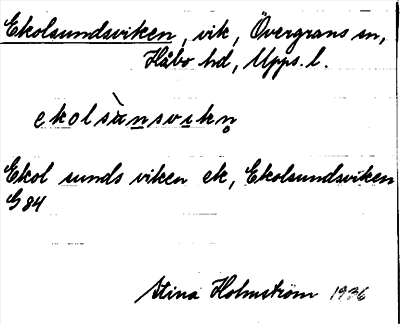 Ekolsundsviken, vik, Övergrans sn,
Håbo hd, Upps. l.
ekolsànsvikn̥
Ekol sunds viken ek, Ekolsundsviken
G 84
Stina Holmström 1936